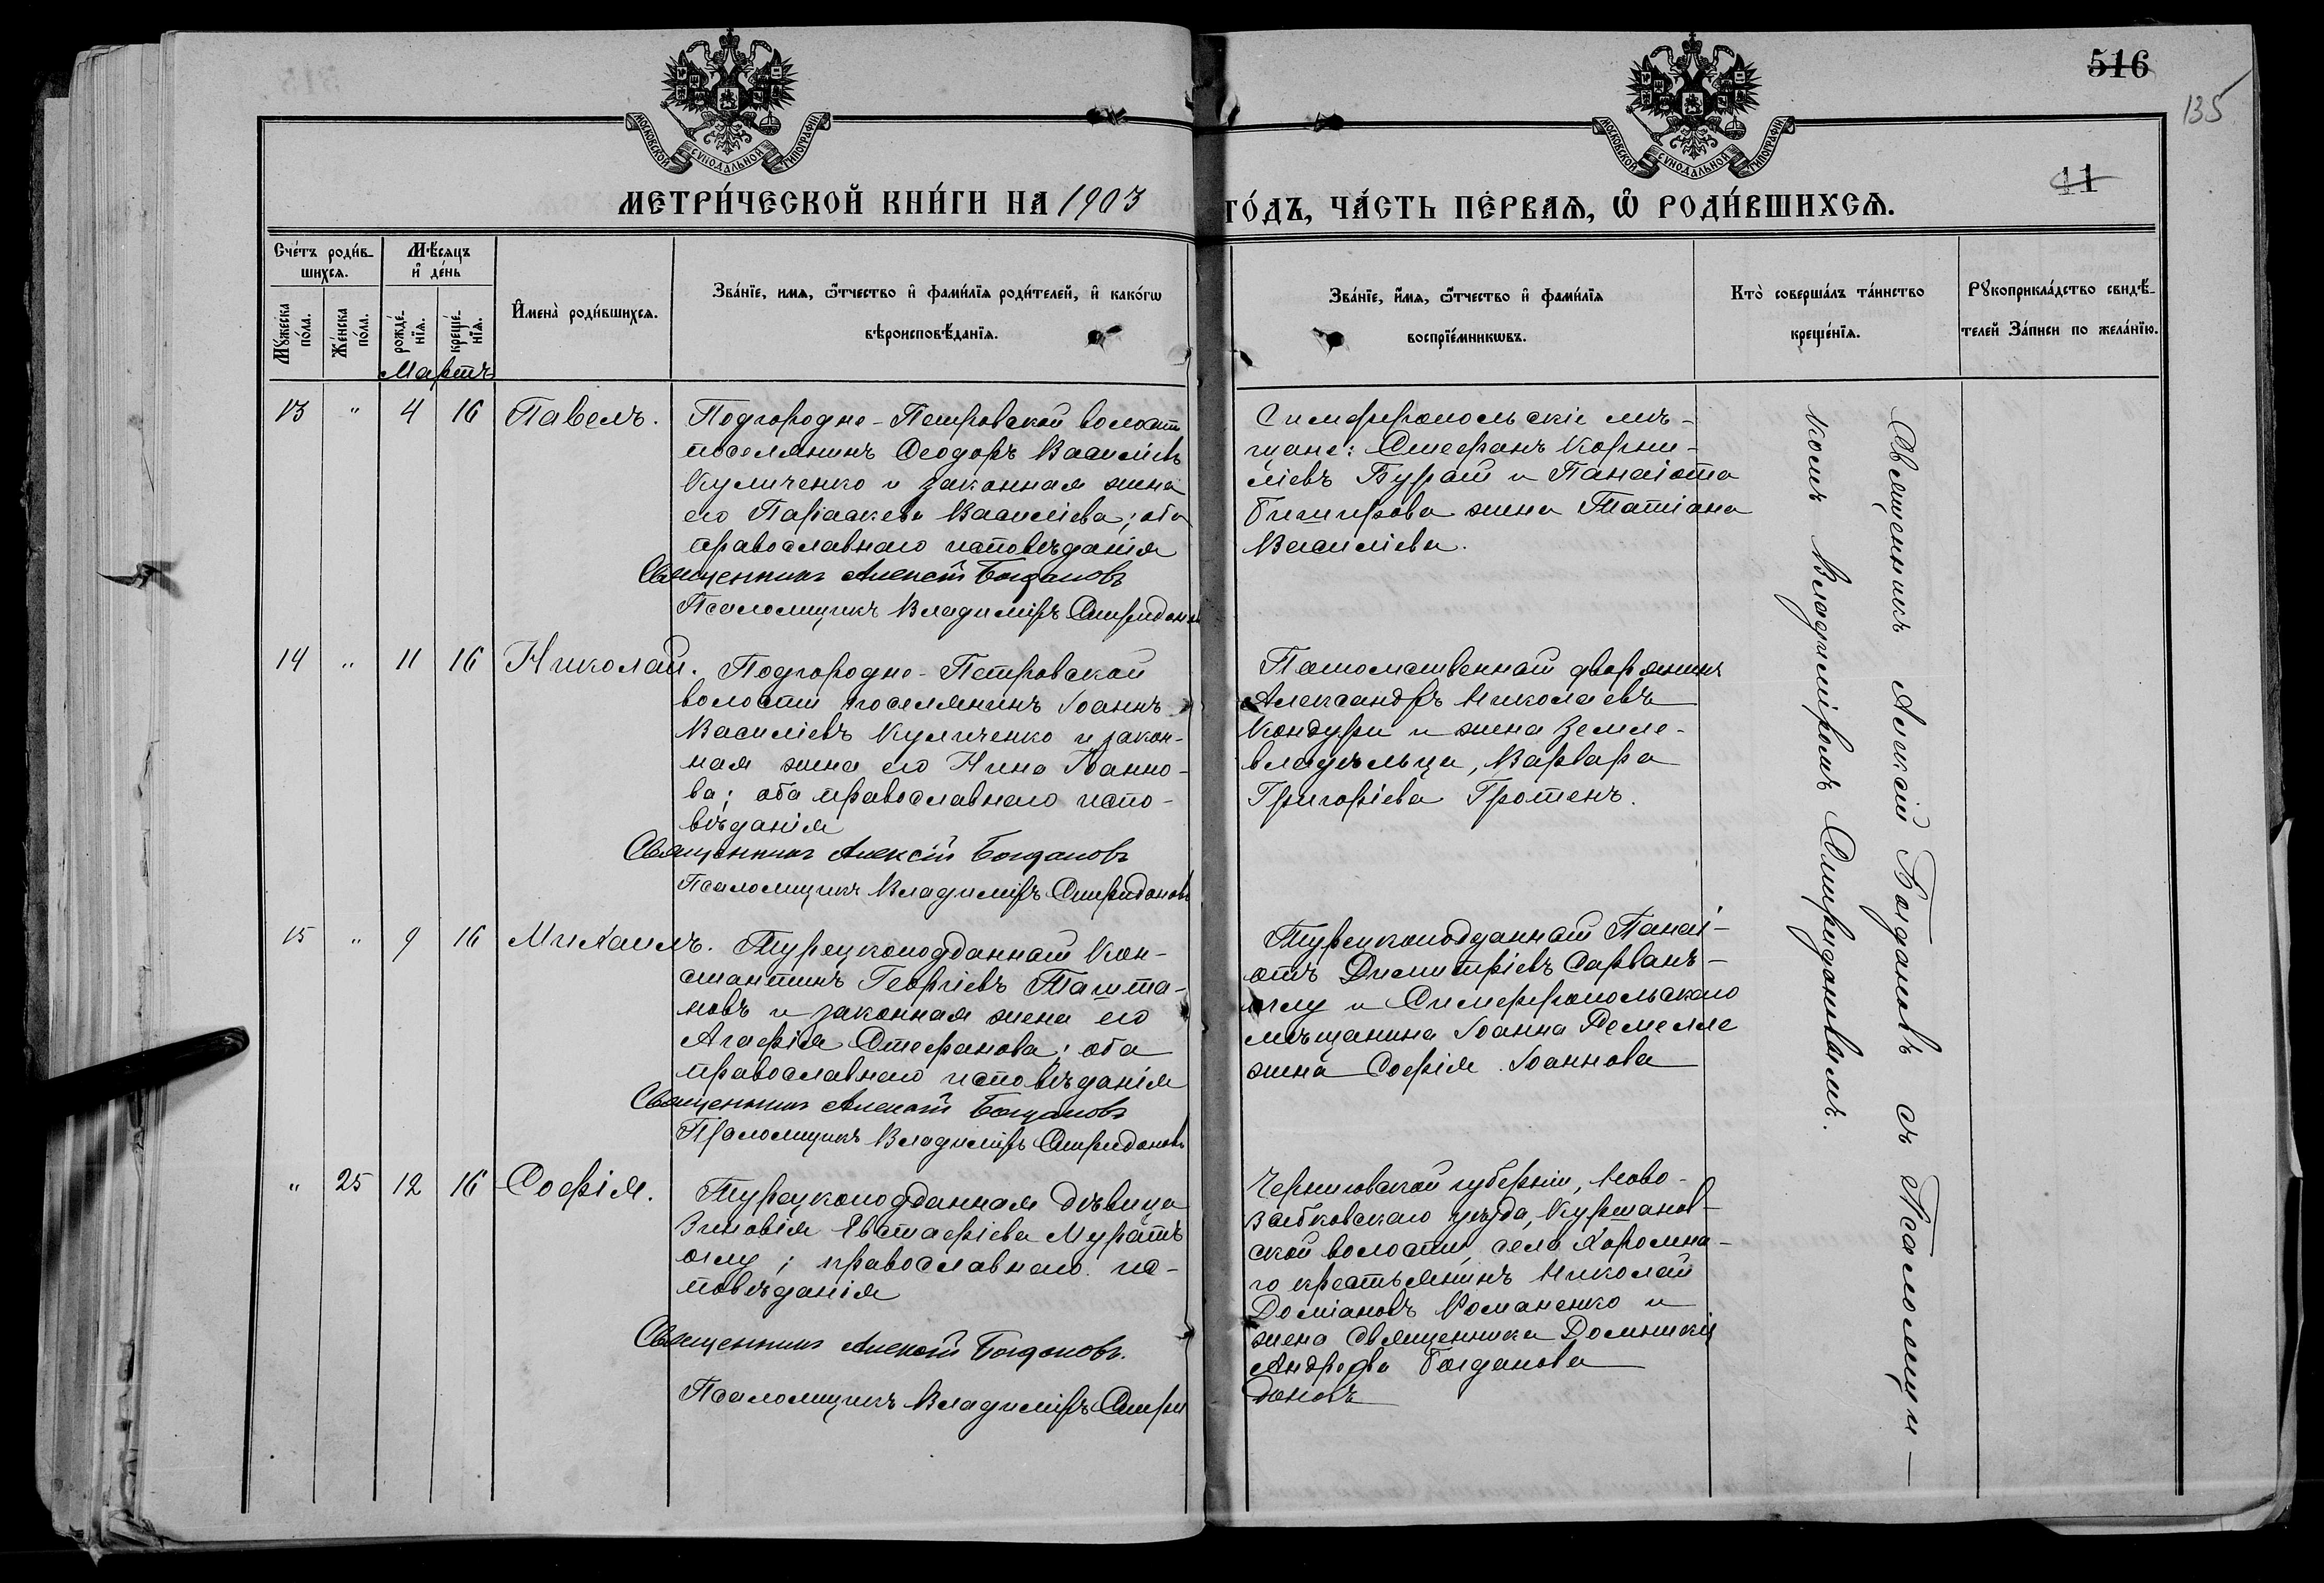 516
135
11
МОСКОВСКОЙ СѴНОДАЛЬНОЙ ТИПОГРАФІИ
МОСКОВСКОЙ СѴНОДАЛЬНОЙ ТИПОГРАФІИ
МЕТРИ́ЧЕСКОЙ КНИ́ГИ НА 1903
ГО́ДЪ, ЧА́СТЬ ПЕ́РВАѦ, Ѡ҆ РОДИ́ВШИХСѦ.
Сче́тъ роди́в-
шихсѧ.
Мѣ́сѧцъ
и҆ де́нь
Мꙋ́жеска
по́ла.
Же́нска
по́ла.
рожде́-
нїѧ.
креще́-
нїѧ.
И҆мена̀ роди́вшихсѧ.
Зва́нїе, имѧ, ѻ҆́тчество и҆ фами́лїѧ роди́телей, и҆ како́гѡ
вѣроисповѣ́данїѧ.
Зва́нїе, и҆́мѧ, ѻ҆́тчество и҆ фами́лїѧ
воспрїе́мникѡвъ.
Кто̀ соверша́лъ та́инство
креще́нїѧ.
Рꙋкоприкла́дство свидѣ́-
телей За́писи по жела́нїю.
Мартъ
13 " 4 16 Павелъ.
Подгородне-Петровской волости
поселянинъ Ѳеодоръ Василіевъ
Куличенко и законная жена
его Параскева Василіева; оба
православнаго исповѣданія
Священникъ Алексій Богдановъ
Псаломщикъ Владиміръ Спиридоновъ
Симферопольскіе мѣ-
щане: Стефанъ Корни-
ліевъ Бурай и Панаіота
жена Татіана
Василіева.
14 " 11 16 Николай.
Подгородне-Петровской
волости поселянинъ Іоаннъ
Василіевъ Куличенко и закон-
ная жена его Нина Іоанно-
ва; оба православнаго испо-
вѣданія
Священникъ Алексій Богдановъ
Псаломщикъ Владиміръ Спиридоновъ
Потомственный дворянинъ
Александръ Николаевъ
Кондури и жена земле-
владѣльца, Варвара
Григоріева Гротенъ.
15 " 9 16 Михаилъ.
Турецкоподданный Кон-
стантинъ Георгіевъ Ташта-
новъ и законная жена его
Агафія Стефанова; оба
православнаго исповѣданія
Священникъ Алексій Богдановъ
Псаломщикъ Владиміръ Спиридоновъ
Турецкоподданный Панаі-
отъ Димитріевъ Сарванъ-
оглу и Симферопольскаго
мѣщанина Іоанна
жена Софія Іоаннова
" 25 12 16 Софія.
Турецкоподданная дѣвица
Зиновія Евстафіева Муратъ
оглу; православнаго ис-
повѣданія
Священникъ Алексій Богдановъ.
Псаломщикъ Владиміръ Спири
Черниговской губерніи, Ново-
зыбковскаго уѣзда, Куршанов-
ской волости, села Хоромна-
го крестьянинъ Николай
Доміановъ Романенко и
жена священника Домникія
Андреева Богданова
доновъ
Священникъ Алексій Богдановъ съ Псаломщи-
комъ Владиміромъ Спиридоновымъ.